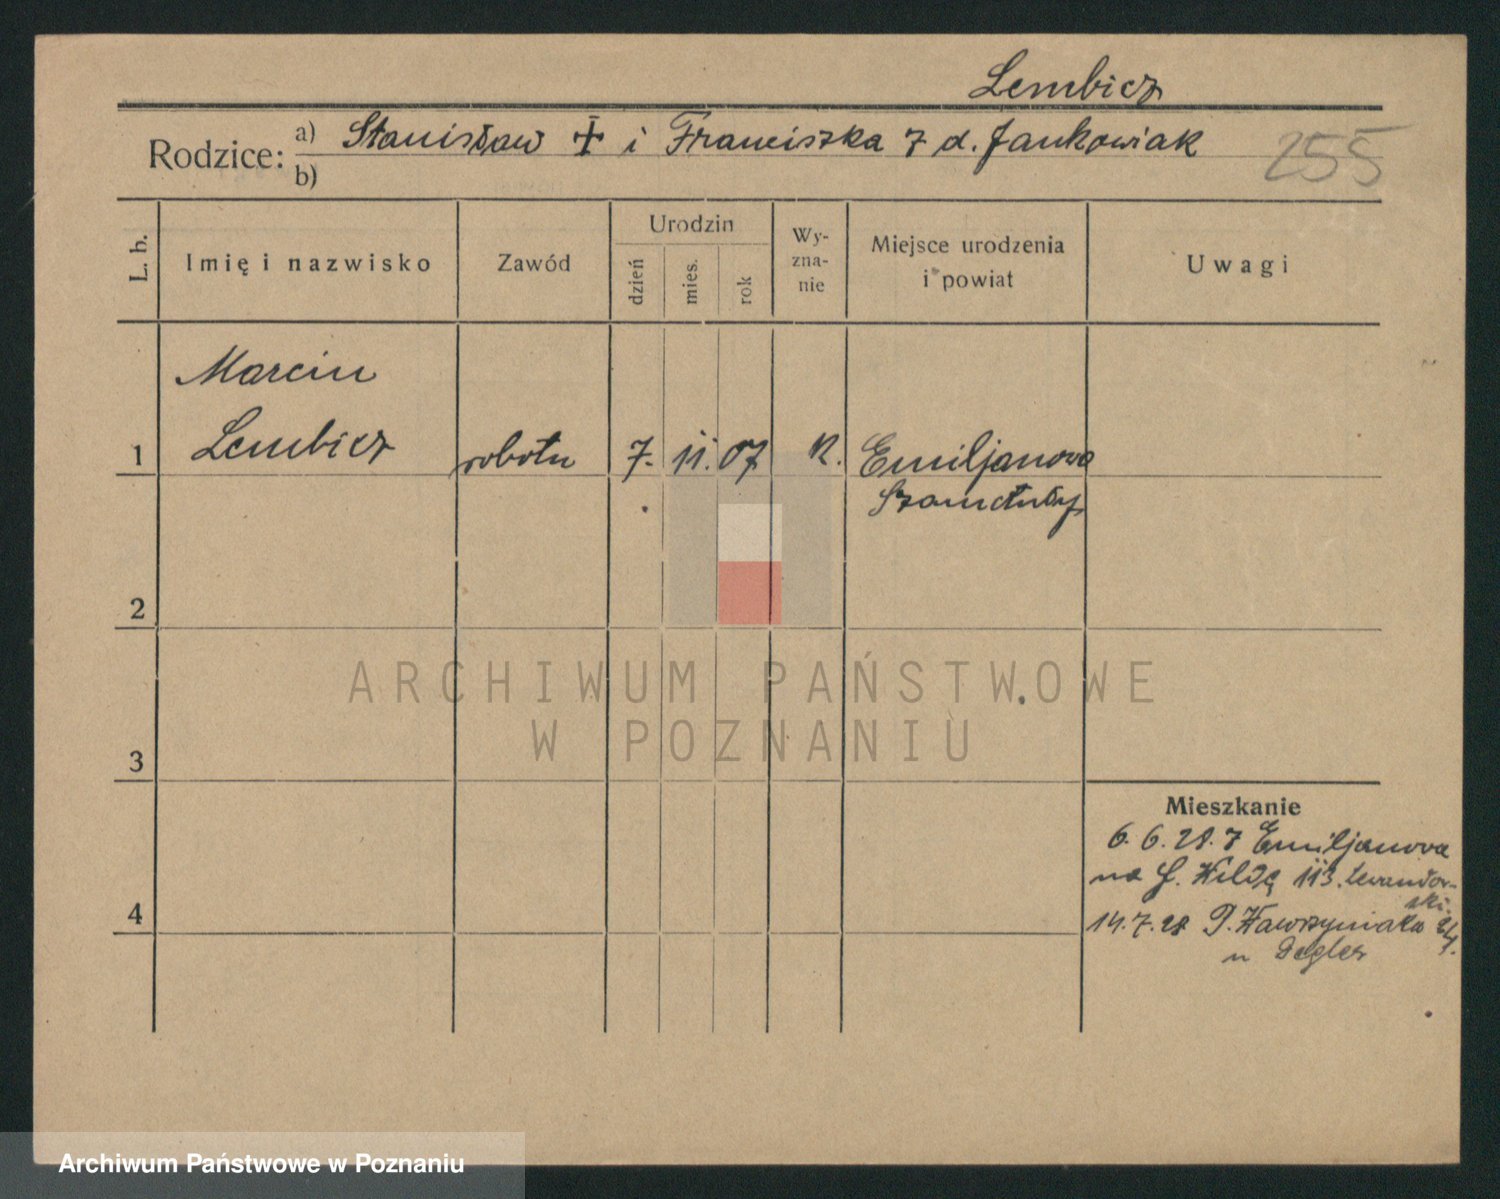 Lembicz
Rodzice: a) Stanisław + i Franciszka z d. Jankowiak
b)
255
L. b.
Imię i nazwisko
Zawód
Urodzin
dzień
mies.
rok
Wy-
zna-
nie
Miejsce urodzenia
i powiat
Uwagi
Marcin
1 Lembicz robotn 7. 11. 07 R. Emiljanowo
Szamotuły
2
ARCHIWUM PAŃSTWOWE
W POZNANIU
3
Mieszkanie
6.6.28. z Emiljanowa
na G. Wildę 113. Lewandow-
ski.
4
14.7.28 P. Wawrzyniaka
u Degler
Archiwum Państwowe w Poznaniu